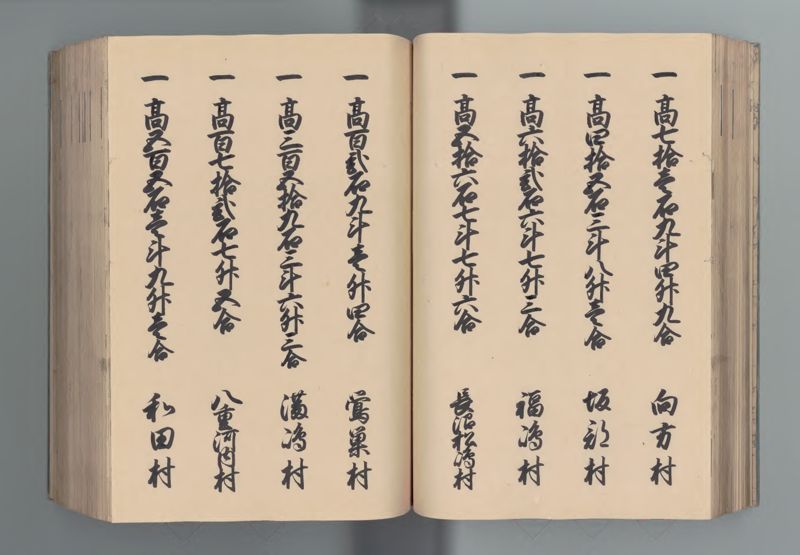 一 高七拾壱石九斗四升九合 向方村
一 高四拾五石三斗八升壱合 坂部村
一 高六拾弐石六斗七升三合 福嶋村
一 高五拾六石七斗七升六合 長沼松嶋村
一 高百弐石九斗壱升四合 鶯巣村
一 高三百五拾九石三斗六升三合 満嶋村
一 高百七拾弐石七升五合 八重河内村
一 高五百五石壱斗九升壱合 和田村